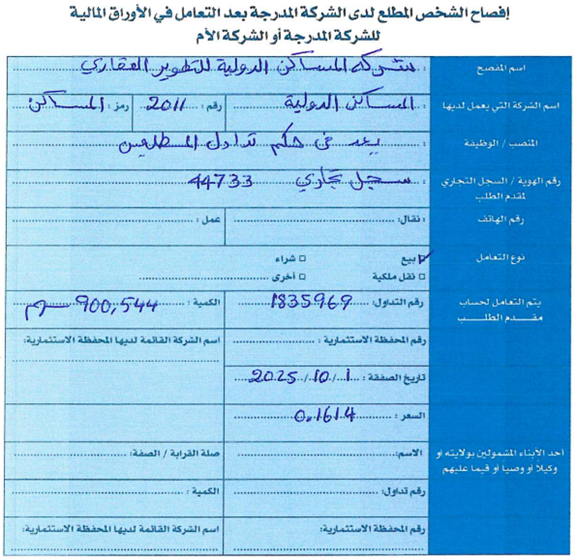 إفصاح الشخص المطلع لدى الشركة المدرجة بعد التعامل في الأوراق المالية
للشركة المدرجة أو الشركة الأم
اسم المفصح : شركة المساكن الدولية للتطوير العقاري
اسم الشركة التي يعمل لديها : المساكن الدولية رقم : 2011 رمز : المساكن
المنصب / الوظيفة : يعد في حكم تداول المطلعين
رقم الهوية / السجل التجاري لمقدم الطلب : سجل تجاري 44733
رقم الهاتف نقال: عمل :
نوع التعامل ☑ بيع ☐ شراء
☐ نقل ملكية ☐ أخرى :
يتم التعامل لحساب مقدم الطلب
رقم التداول : 1835969 الكمية : 900,544 سهم
رقم المحفظة الاستثمارية: اسم الشركة القائمة لديها المحفظة الاستثمارية:
تاريخ الصفقة : 2025/10/1
السعر : 0.1614
أحد الأبناء المشمولين بولايته أو وكيلا أو وصيا أو قيما عليهم
الاسم: صلة القرابة / الصفة:
رقم تداول: الكمية :
رقم المحفظة الاستثمارية: اسم الشركة القائمة لديها المحفظة الاستثمارية: